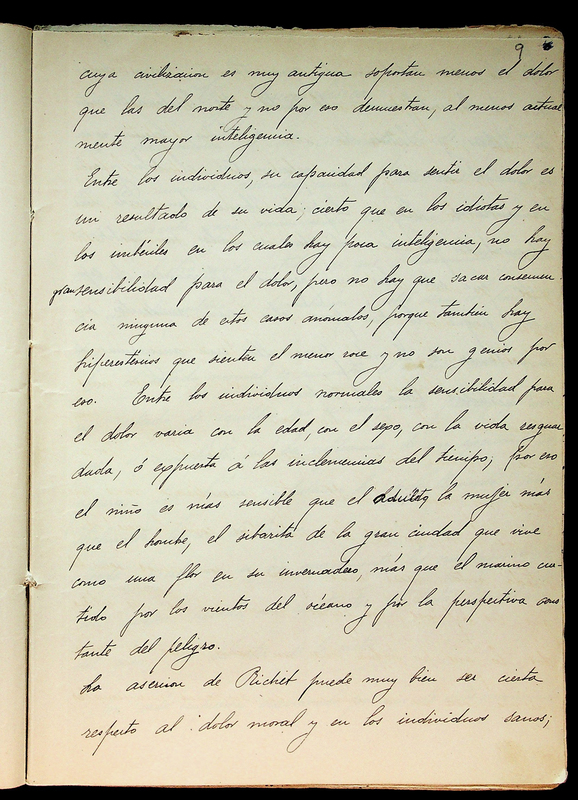 9
cuya civilizacion es muy antigua soportan menos el dolor
que las del norte y no por eso demuestran, al menos actual
mente mayor inteligencia.
Entre los individuos, su capacidad para sentir el dolor es
un resultado de su vida; cierto que en los idiotas y en
los imbéciles en los cuales hay poca inteligencia, no hay
gran sensibilidad para el dolor, pero no hay que sacar consecuen
cia ninguna de estos casos anómalos, porque tambien hay
hiperestésicos que sienten el menor roce y no son genios por
eso. Entre los individuos normales la sensibilidad para
el dolor varia con la edad, con el sexo, con la vida resguar
dada, ó expuesta á las inclemencias del tiempo; por eso
el niño es más sensible que el adulto y la mujer más
que el hombre, el sibarita de la gran ciudad que vive
como una flor en su invernadero, más que el marino cur-
tido por los vientos del océano y por la perspectiva cons
tante del peligro.
La asercion de Richet puede muy bien ser cierta
respecto al dolor moral y en los individuos sanos;